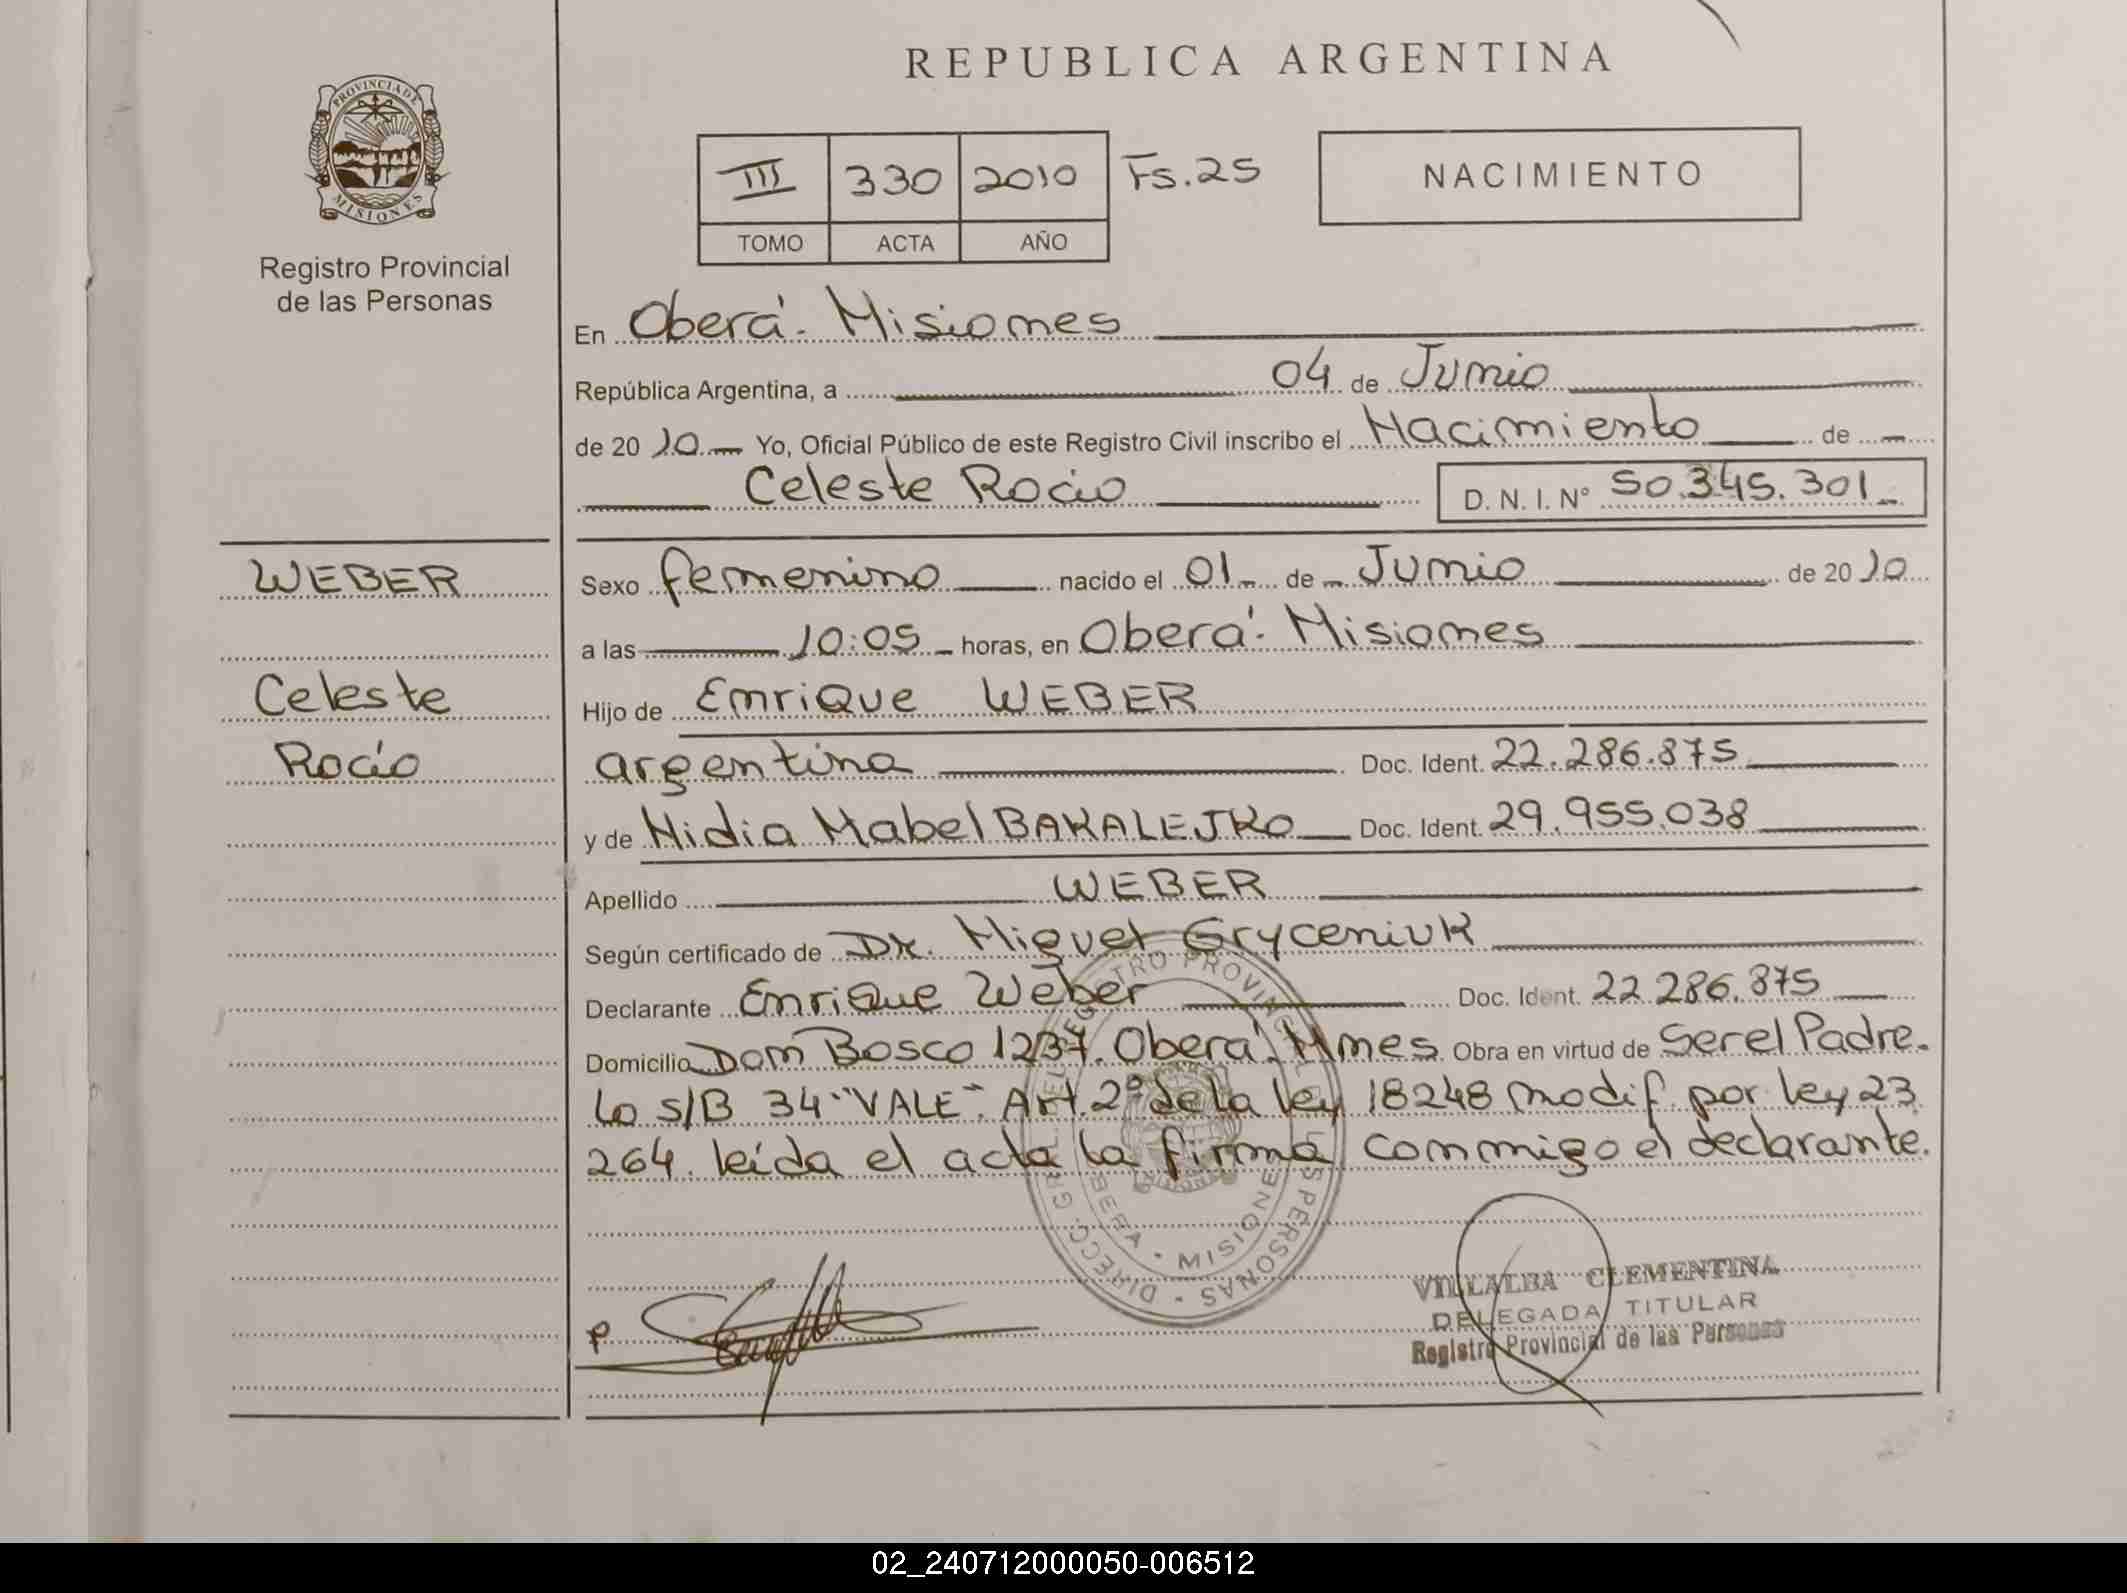 REPUBLICA ARGENTINA
PROVINCIA DE
MISIONES
Registro Provincial
de las Personas
III 330 2010 Fs. 25
TOMO ACTA AÑO
NACIMIENTO
En Oberá - Misiones
República Argentina, a 04 de Junio
de 20 10 Yo, Oficial Público de este Registro Civil inscribo el Nacimiento de
Celeste Rocío D. N. I. N° 50.345.301
WEBER
Celeste
Rocío
Sexo femenino nacido el 01 de Junio de 20 10
a las 10:05 horas, en Oberá - Misiones
Hijo de Enrique WEBER
argentina Doc. Ident. 22.286.875
y de Nidia Mabel BAKALEJKO Doc. Ident. 29.955.038
Apellido WEBER
Según certificado de Dr. Miguel Gryceniuk
Declarante Enrique Weber Doc. Ident. 22.286.875
Domicilio Dom Bosco 1237. Oberá. Mnes. Obra en virtud de Ser el Padre.
Lo S/B 34 "VALE". Art. 2° de la ley 18248 modif. por ley 23
264. leída el acta la firma conmigo el declarante.
DIRECC. GRAL. DEL REGISTRO PROVINCIAL DE LAS PERSONAS
OBERA - MISIONES
P
VILLALBA CLEMENTINA
DELEGADA TITULAR
Registro Provincial de las Personas
02_240712000050-006512